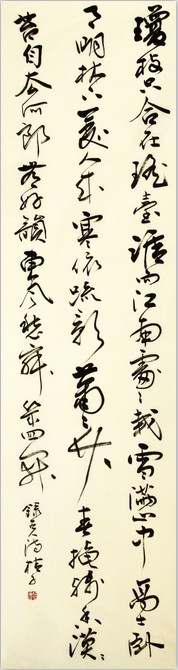 瓊姿只合在瑤臺誰向江南處々栽雪滿山中高士臥
月明林下美人來寒依疏影蕭々竹春掩殘香漠々
苔自去何郎無好韻東風愁寂幾回開